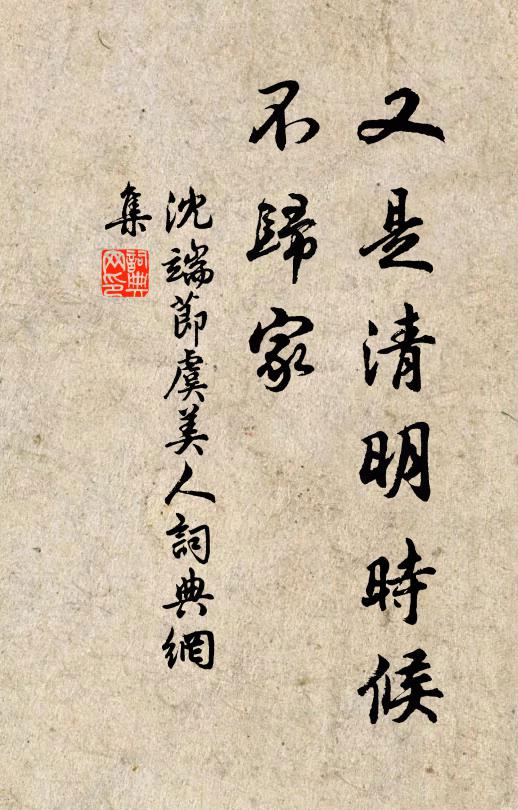 又是清明時候
不歸家
沈端節虞美人詞典網
集
詞典
网印